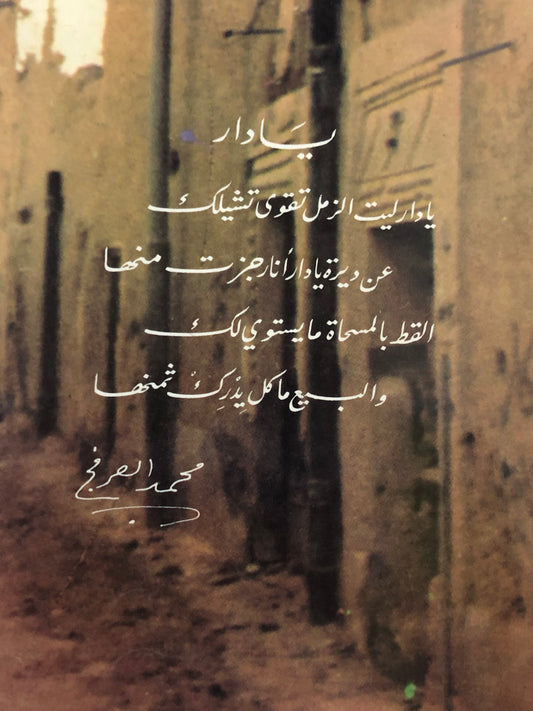 يادار
يادار ليت الزمل تقوى تشيلك
عن ديرة يادار أنا رجزت منها
القط بالمسحاة ما يستوي لك
والبيع ما كل يِدْرِكْ ثمنها
محمد العرفج